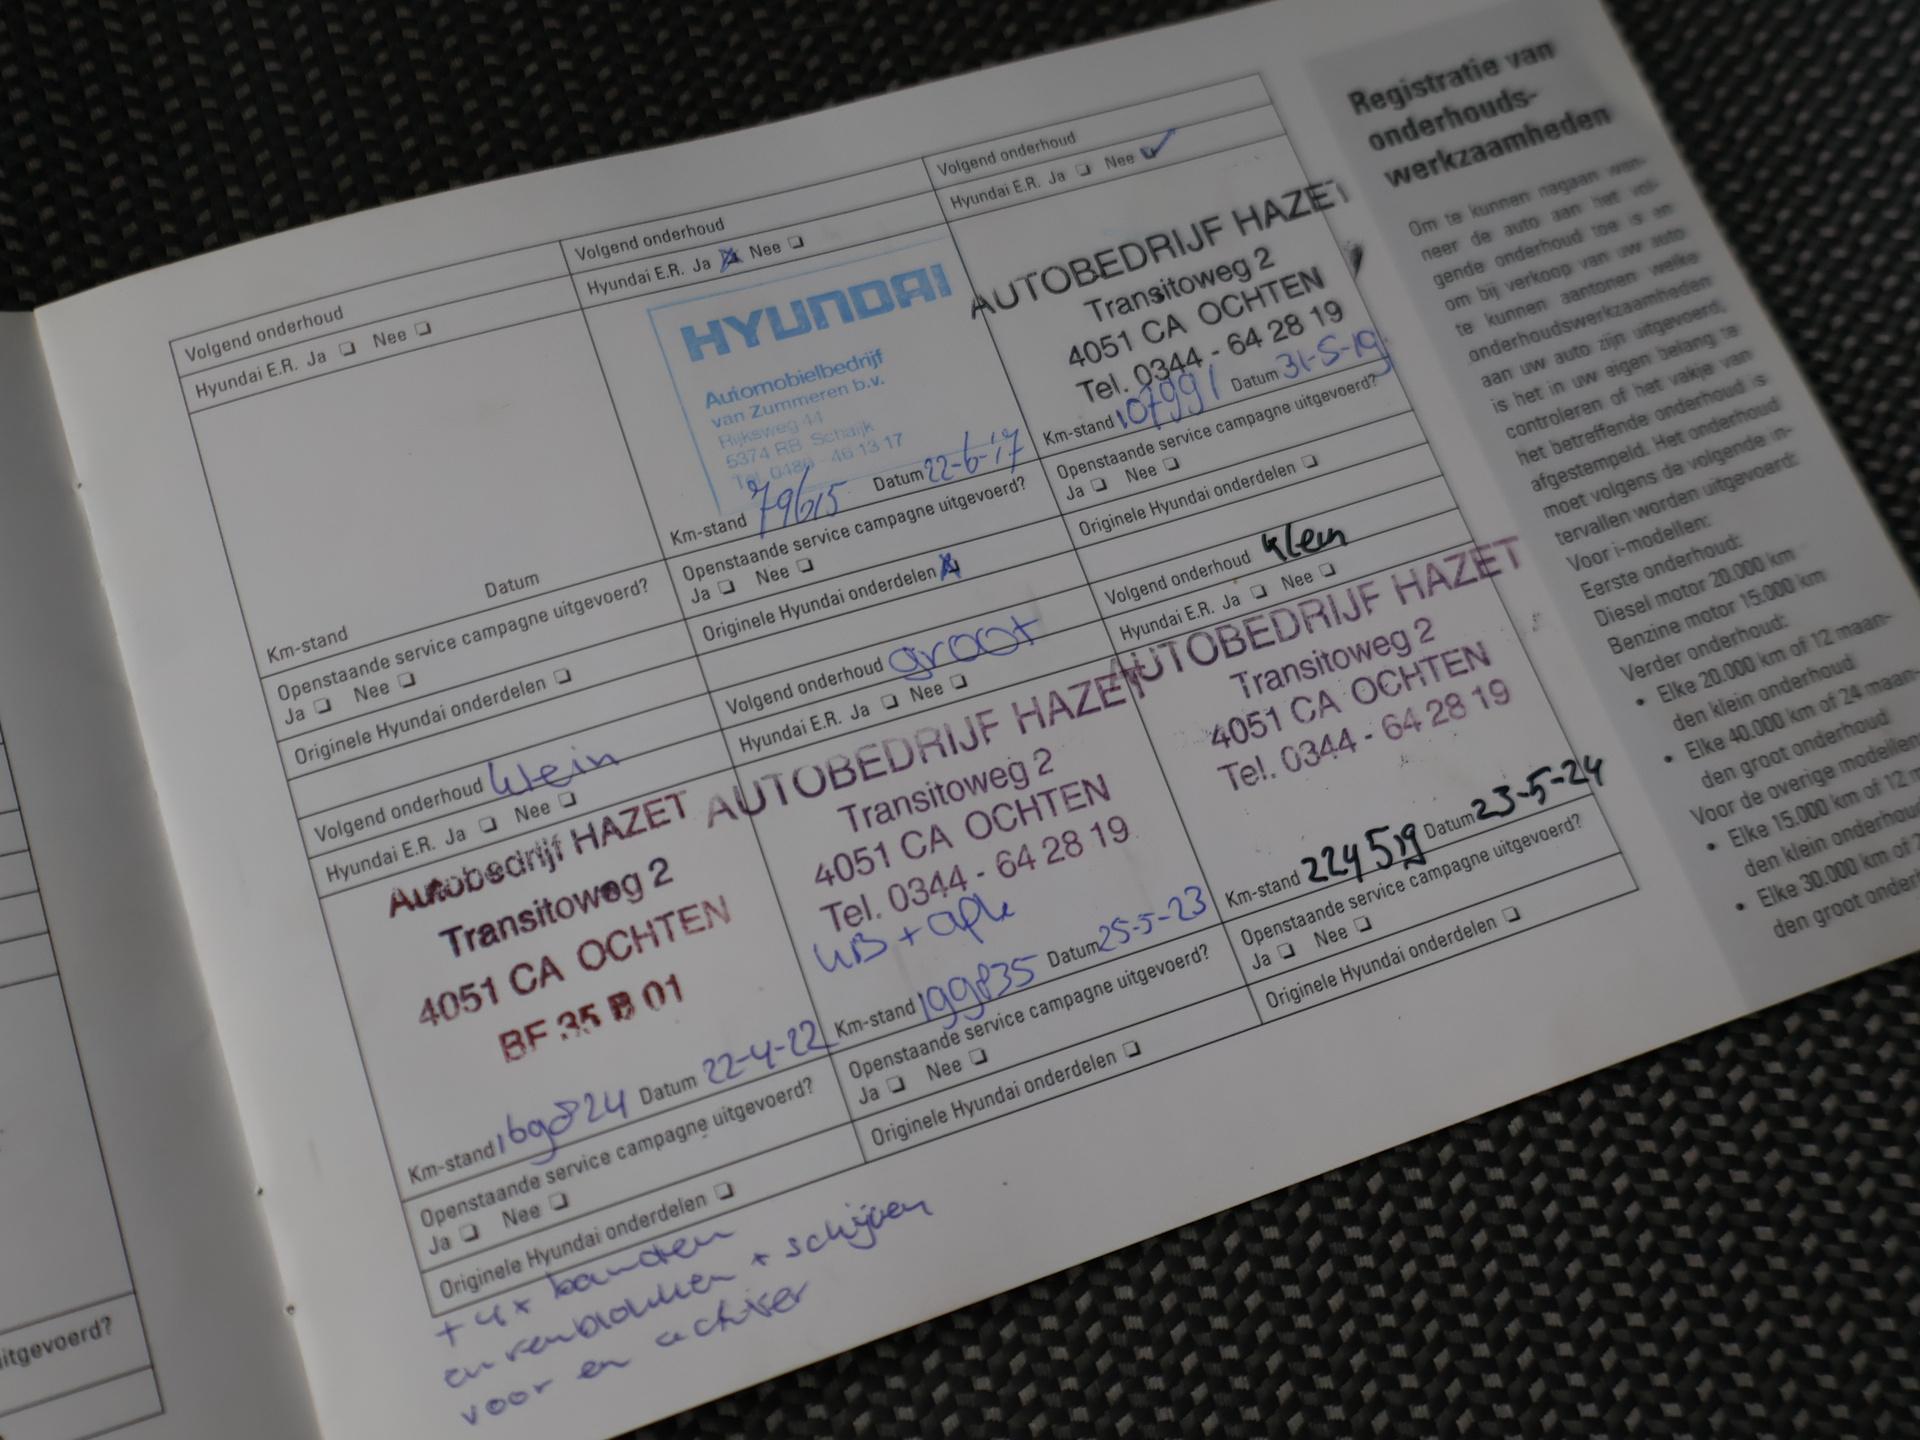 Volgend onderhoud
Hyundai E.R. Ja ❏ Nee ❏
Km-stand Datum
Openstaande service campagne uitgevoerd?
Ja ❏ Nee ❏
Originele Hyundai onderdelen ❏
Volgend onderhoud
Hyundai E.R. Ja ❏ Nee ❏
HYUNDAI
Automobielbedrijf
van Zummeren b.v.
Rijksweg 44
5374 RB Schaijk
Tel. 0486 - 46 13 17
Km-stand 79615 Datum 22-6-17
Openstaande service campagne uitgevoerd?
Ja ❏ Nee ❏
Originele Hyundai onderdelen
Volgend onderhoud
Hyundai E.R. Ja ❏ Nee ❏
AUTOBEDRIJF HAZET
Transitoweg 2
4051 CA OCHTEN
Tel. 0344 - 64 28 19
Km-stand 107991 Datum 31-5-19
Openstaande service campagne uitgevoerd?
Ja ❏ Nee ❏
Originele Hyundai onderdelen ❏
Volgend onderhoud klein
Hyundai E.R. Ja ❏ Nee ❏
Autobedrijf HAZET
Transitoweg 2
4051 CA OCHTEN
BF 35 B 01
Km-stand 169824 Datum 22-4-22
Openstaande service campagne uitgevoerd?
Ja ❏ Nee ❏
Originele Hyundai onderdelen ❏
+ 4x banden
en remblokken + schijven
voor en achter
Volgend onderhoud groot
Hyundai E.R. Ja ❏ Nee ❏
AUTOBEDRIJF HAZET
Transitoweg 2
4051 CA OCHTEN
Tel. 0344 - 64 28 19
Km-stand 199835 Datum 25-5-23
Openstaande service campagne uitgevoerd?
Ja ❏ Nee ❏
Originele Hyundai onderdelen ❏
Volgend onderhoud klein
Hyundai E.R. Ja ❏ Nee ❏
AUTOBEDRIJF HAZET
Transitoweg 2
4051 CA OCHTEN
Tel. 0344 - 64 28 19
Km-stand 224519 Datum 23-5-24
Openstaande service campagne uitgevoerd?
Ja ❏ Nee ❏
Originele Hyundai onderdelen ❏
Registratie van
onderhouds-
werkzaamheden
Om te kunnen nagaan wan-
neer de auto aan het vol-
gende onderhoud toe is en
om bij verkoop van uw auto
te kunnen aantonen welke
onderhoudswerkzaamheden
aan uw auto zijn uitgevoerd,
is het in uw eigen belang te
controleren of het vakje van
het betreffende onderhoud is
afgestempeld. Het onderhoud
moet volgens de volgende in-
tervallen worden uitgevoerd:
Voor i-modellen:
Eerste onderhoud:
Diesel motor 20.000 km
Benzine motor 15.000 km
Verder onderhoud:
• Elke 20.000 km of 12 maan-
den klein onderhoud
• Elke 40.000 km of 24 maan-
den groot onderhoud
Voor de overige modellen:
• Elke 15.000 km of 12 m
den klein onderhou
• Elke 30.000 km of 2
den groot onderh
uitgevoerd?